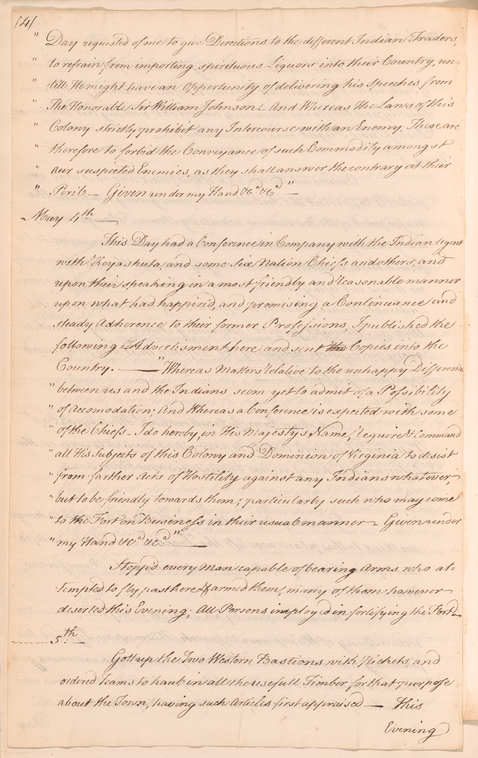 (4)
" Day requested of me to give Directions to the different Indian Traders,
" to refrain from importing spirituous Liquors into their Country, un-
" till He might have an Opportunity of delivering his Speeches from
" The Honorable Sir William Johnson — And Whereas the Laws of this
" Colony strictly prohibit any Intercourse with an Enemy, These are
" therefore to forbid the Conveyance of such Commodity amongst
" our suspected Enemies, as they shall answer the contrary at their
" Peril — Given under my Hand &c.a &c.a "
May 4th —
This Day had a Conference in Company with the Indian Agent
with Keyashuta, and some Six Nation Chiefs and others, and
upon their speaking in a most friendly and reasonable manner
upon what had happined, and promising a Continuance and
steady Adherence to their former Professions, I published the
following Advertisment here and sent the Copies into the
Country. — "Whereas Matters relative to the unhappy Differences
" between us and the Indians seem yet to admit of a Possibility
" of Accomodation; And Whereas a Conference is expected with some
" of the Chiefs — I do hereby, in His Majesty's Name, require & Command
" all His Subjects of this Colony and Dominion of Virginia to desist
" from farther Acts of Hostility against any Indians whatever,
" but to be friendly towards them, particularly such who may come
" to the Fort on Business in their usual manner — Given under
" my Hand &c.a &c.a " —
Stopped every Man capable of bearing Arms, who at-
tempted to fly past here & armed them, many of them however
deserted this Evening; All Persons imployed in fortifying the Fort —
5th —
Got up the Two Western Bastions with Pickets, and
ordered Teams to haul in all the usefull Timber for that purpose
about the Town, having such Articles first appraised — This
Evening